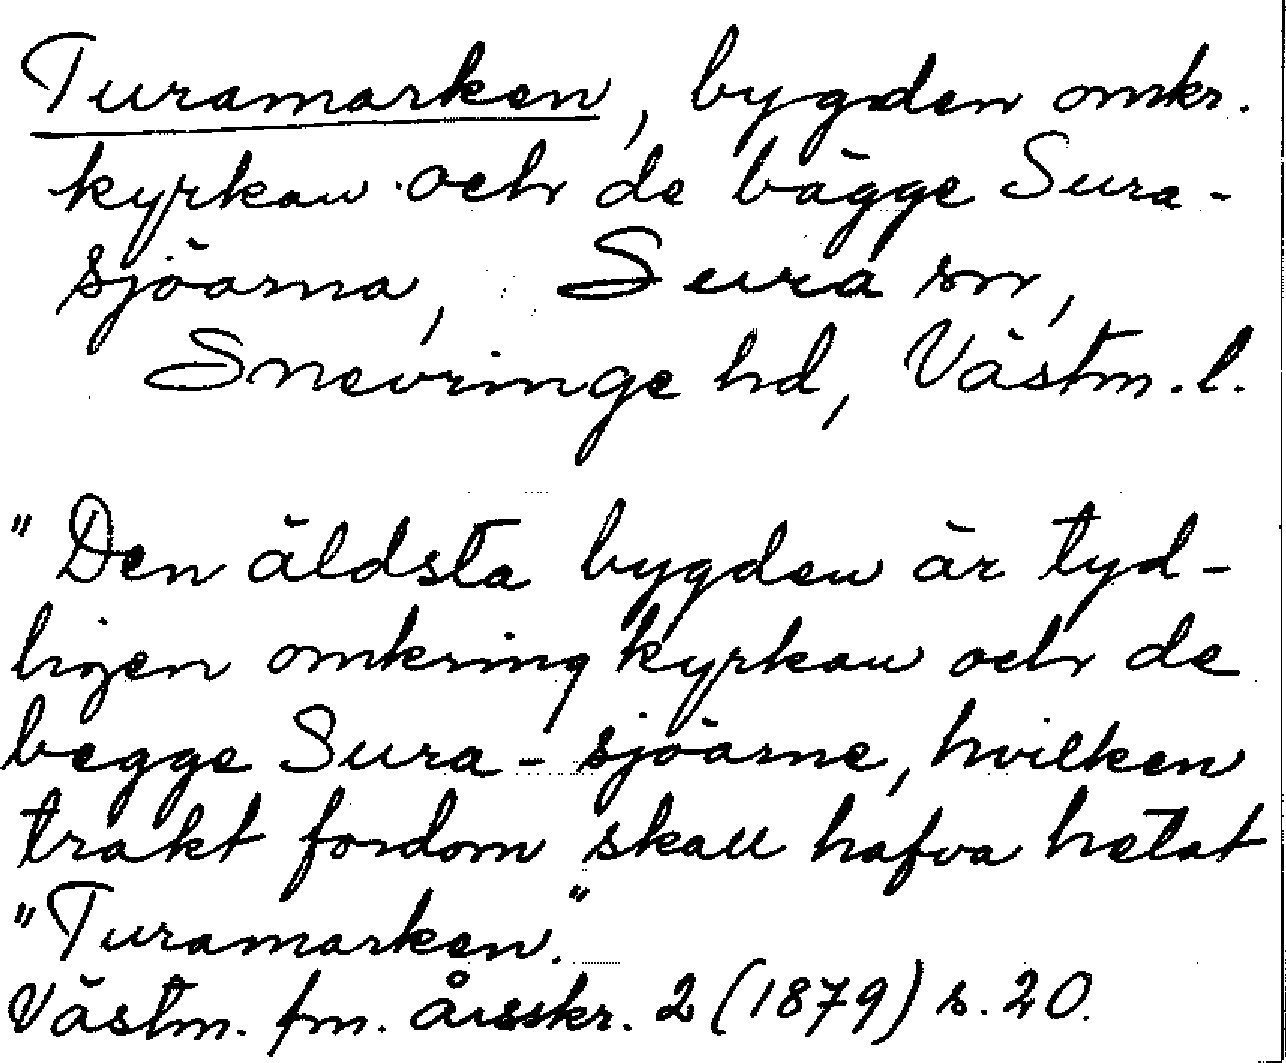 Turamarken, bygden omkr.
kyrkan och de bägge Sura-
sjöarna, Sura sn,
Snevringe hd, Västm. l.
"Den äldsta bygden är tyd-
ligen omkring kyrkan och de
begge Sura-sjöarne, hvilken
trakt fordom skall hafva hetat
"Turamarken."
Västm. fm. årsskr. 2 (1879) s. 20.